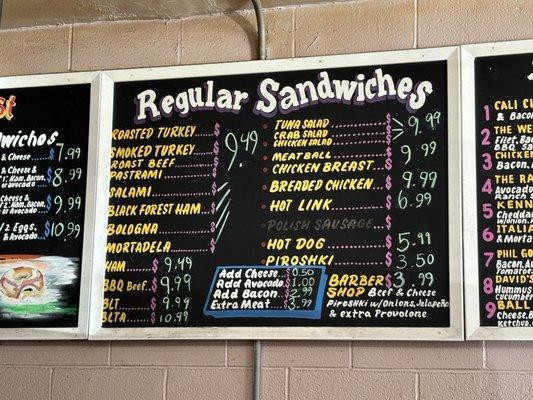 st
dwiches
& Cheese.. $7.99
& Cheese $8.99
1" Ham, Bacon,
or Avocado
& Cheese.. $9.99
Ham, Bacon,
or Avocado
/ 2 Eggs, $10.99
& Avocado.
Regular Sandwiches
ROASTED TURKEY..... $
SMOKED TURKEY..... $ 9.49
ROAST BEEF..... $
PASTRAMI..... $
SALAMI..... $
BLACK FOREST HAM.. $
BOLOGNA..... $
MORTADELA..... $
HAM..... $9.49
BBQ BEEF.. $9.99
BLT..... $9.99
BLTA..... $10.99
TUNA SALAD..... $
CRAB SALAD..... $ 9.99
CHICKEN SALAD..... $
MEATBALL..... $ 9.99
CHICKEN BREAST..... $
BREADED CHICKEN.. $ 9.99
HOT LINK..... $ 6.99
POLISH SAUSAGE
HOT DOG..... $ 5.99
PIROSHKI..... $ 3.50
Add Cheese... $0.50
Add Avocado.. $1.00
Add Bacon.... $2.99
Extra Meat... $3.99
BARBER $3.99
SHOP Beef & Cheese
Piroshki w/Onions, Jalapeño
& extra Provolone
1 CALI C
& Baco
2 THE WE
Filet, Ba
BBQ Sa
3 CHICKEN
Bacon,
4 THE RA
Avocado
Ranch S
5 KENN
Chedda
w/onion
6 ITALIA
& Morta
7 PHIL GO
Bacon, A
Tomatoe
8 DAVID'S
Hummus
cucumber
9 BALL
Cheese, B
Ketchup